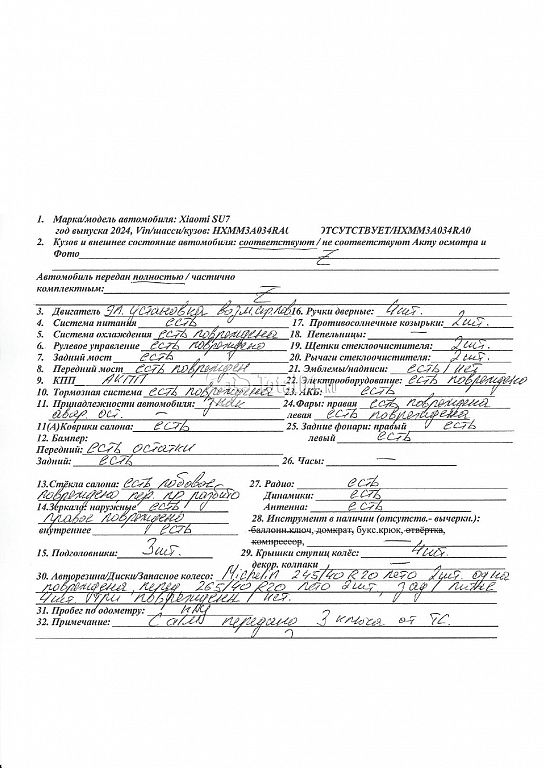 1. Марка/модель автомобиля: Xiaomi SU7
год выпуска 2024, Vin/шасси/кузов: HXMM3A034RA0 ОТСУТСТВУЕТ/HXMM3A034RA0
2. Кузов и внешнее состояние автомобиля: соответствуют / не соответствуют Акту осмотра и
Фото
Автомобиль передан полностью / частично
комплектным:
3. Двигатель эл. установка 16. Ручки дверные: 4 шт.
4. Система питания есть 17. Противосолнечные козырьки: 2 шт.
5. Система охлаждения есть повреждена 18. Пепельницы: —
6. Рулевое управление есть повреждено 19. Щетки стеклоочистителя: 2 шт.
7. Задний мост есть 20. Рычаги стеклоочистителя: 2 шт.
8. Передний мост есть поврежден 21. Эмблемы/надписи: есть / нет
9. КПП АКПП 22. Электрооборудование: есть повреждено
10. Тормозная система есть повреждена 23. АКБ: есть
11. Принадлежности автомобиля: знак 24.Фары: правая есть повреждена
авар. ост. — левая есть повреждена
11(А)Коврики салона: есть 25. Задние фонари: правый есть
12. Бампер: левый есть
Передний: есть остатки
Задний: есть 26. Часы: —
13.Стёкла салона: есть лобовое 27. Радио: есть
повреждено пер. пр. разбито Динамики: есть
14.Зеркала: наружные есть Антенна: есть
правое повреждено 28. Инструмент в наличии (отсутств.- вычеркн.):
внутреннее есть баллонн.ключ, домкрат, букс.крюк, отвёртка,
компрессор,
15. Подголовники: 3 шт. 29. Крышки ступиц колёс: 4 шт.
декор. колпаки —
30. Авторезина/Диски/Запасное колесо: Michelin 245/40 R20 лето 2 шт. одна
повреждена, перед 265/40 R20 лето 2 шт, зад / литые
4 шт. повреждены / нет.
31. Пробег по одометру: н/д
32. Примечание: передано 3 ключа от ТС.